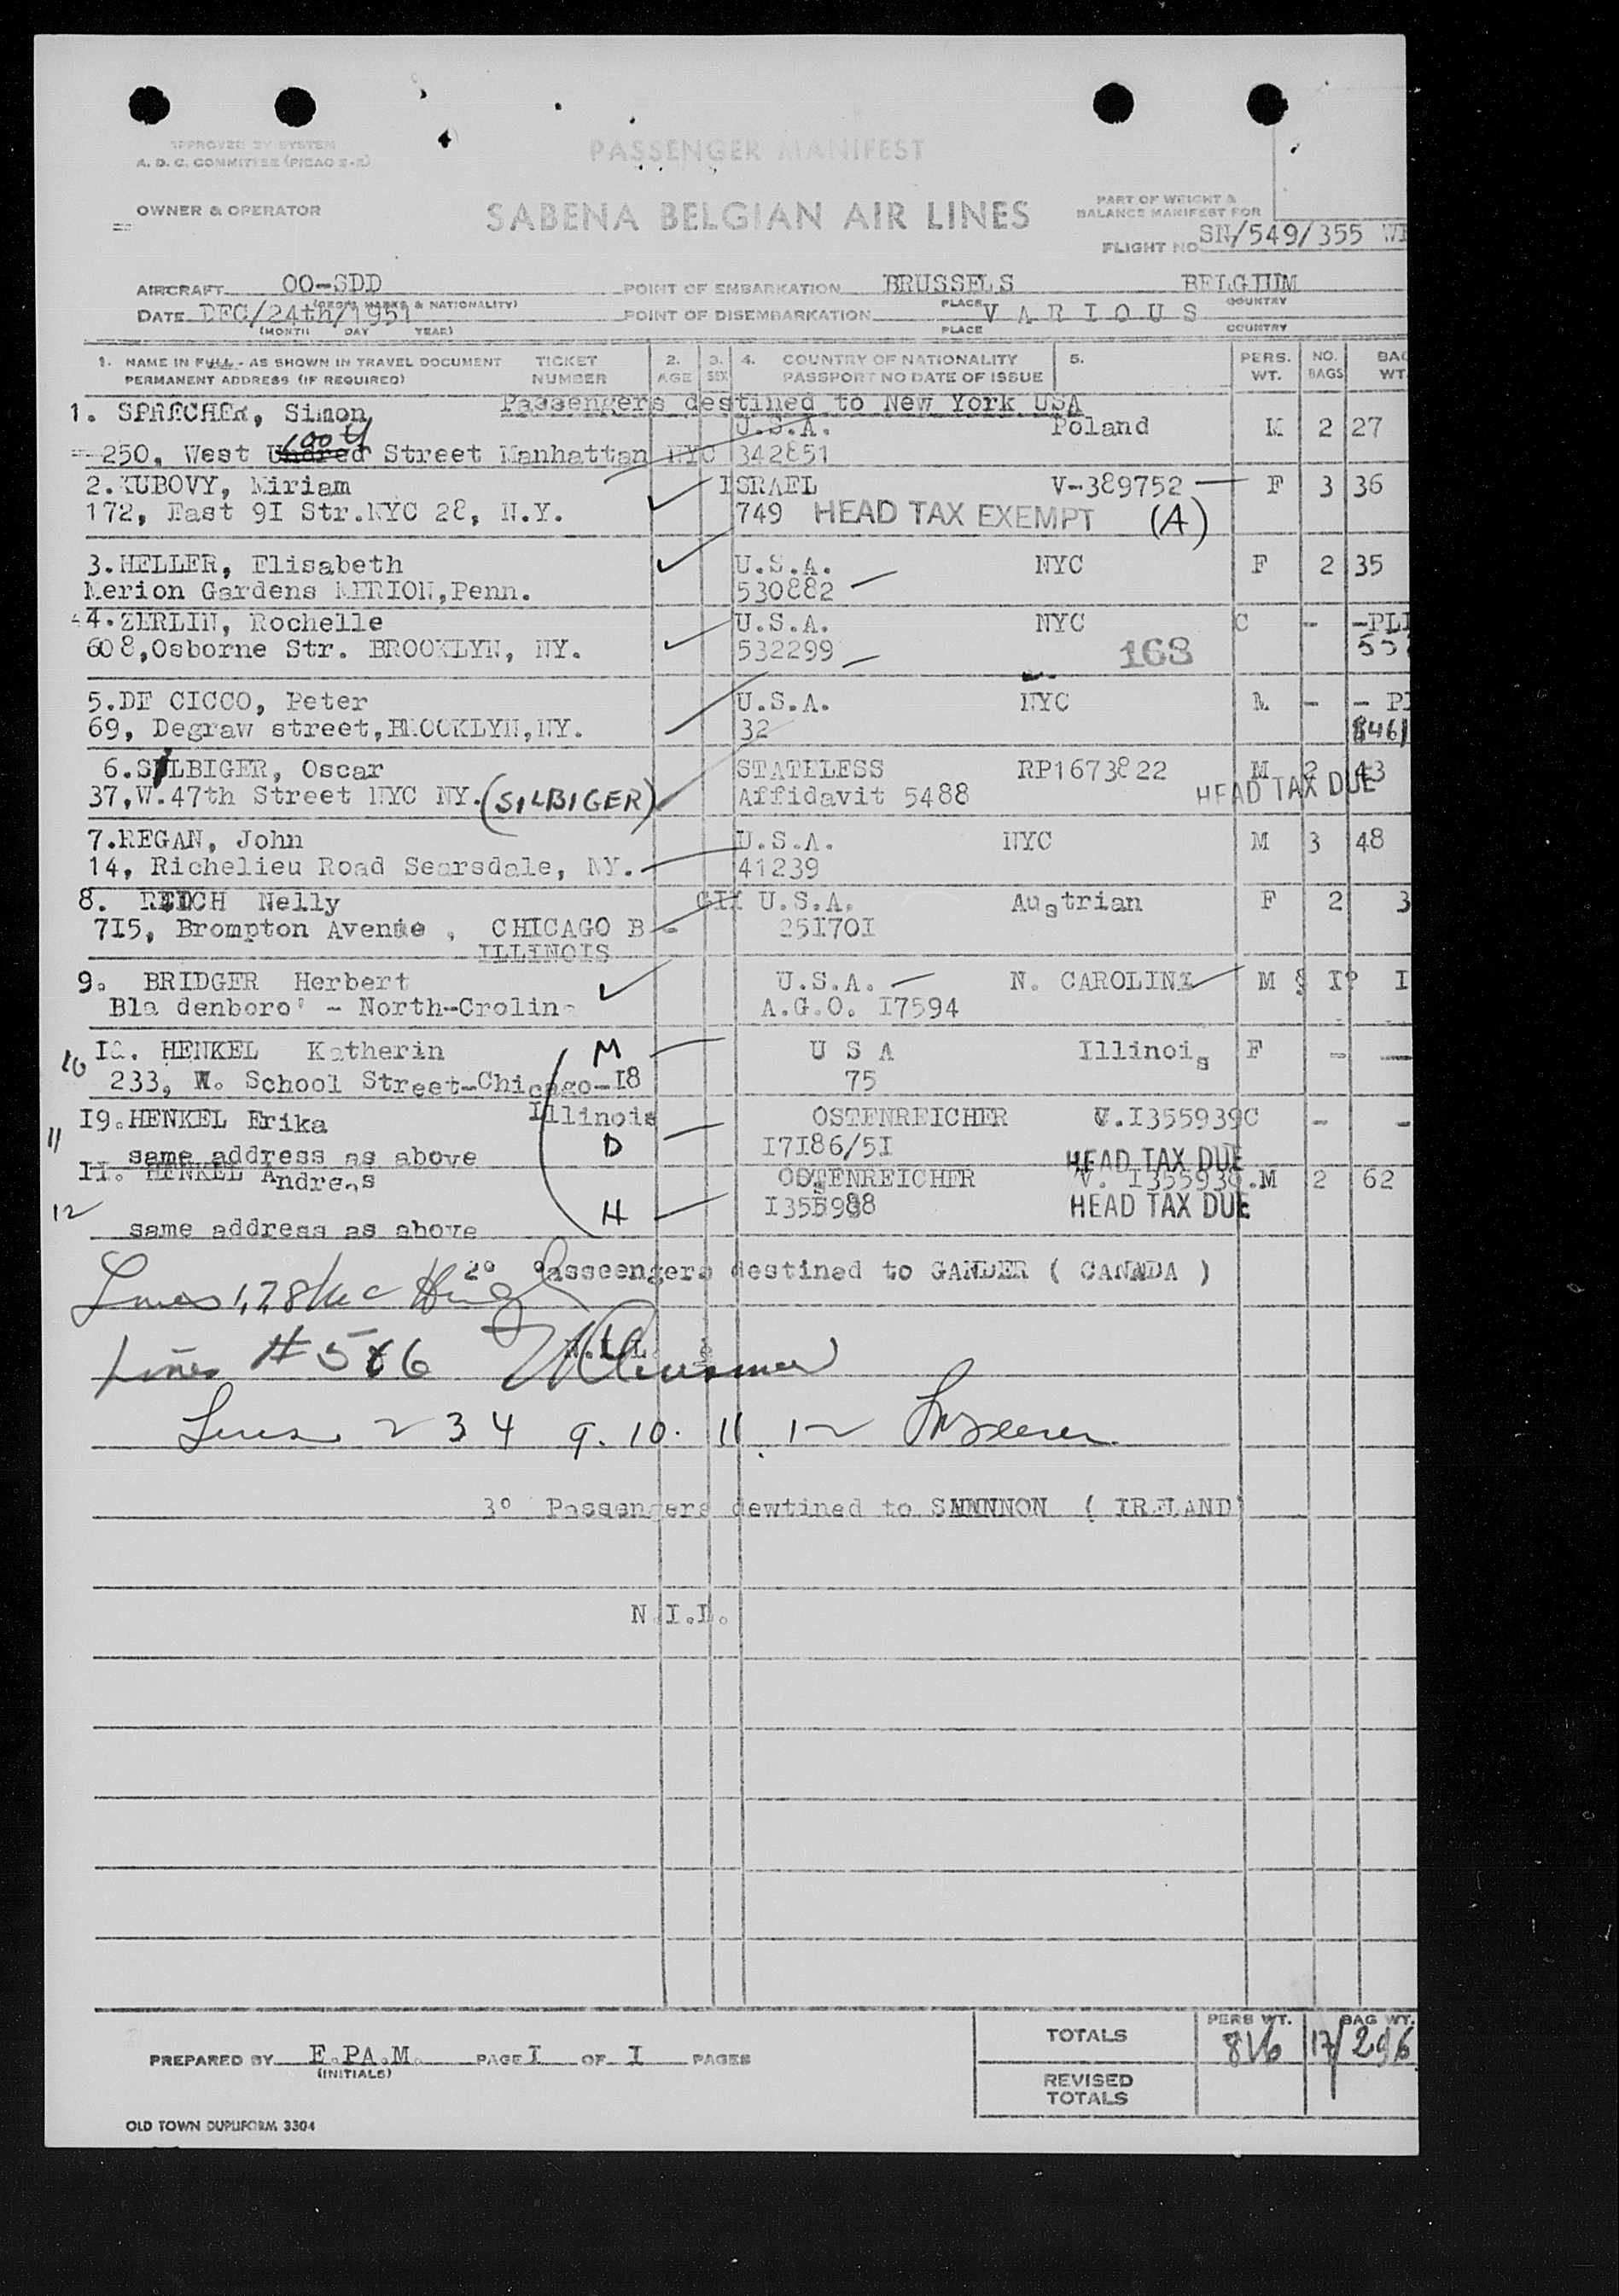 APPROVED BY SYSTEM
A. D. C. COMMITTEE (PICAO 2-R)
PASSENGER MANIFEST
OWNER & OPERATOR
SABENA BELGIAN AIR LINES
PART OF WEIGHT &
BALANCE MANIFEST FOR
FLIGHT NO SN/549/355
AIRCRAFT OO-SDD POINT OF EMBARKATION BRUSSELS BELGIUM
(REG'N MARKS & NATIONALITY) PLACE COUNTRY
DATE DEC/24th/1951 POINT OF DISEMBARKATION V A R I O U S
(MONTH DAY YEAR) PLACE COUNTRY
1. NAME IN FULL - AS SHOWN IN TRAVEL DOCUMENT TICKET 2. 3. 4. COUNTRY OF NATIONALITY 5. PERS. NO. BAG
PERMANENT ADDRESS (IF REQUIRED) NUMBER AGE SEX PASSPORT NO DATE OF ISSUE WT. BAGS WT.
Passengers destined to New York USA
1. SPRECHER, Simon U.S.A. Poland M 2 27
250, West 100th Street Manhattan NYC 342851
2. KUBOVY, Miriam ISRAEL V-389752 F 3 36
172, East 9I Str.NYC 28, N.Y. 749 HEAD TAX EXEMPT (A)
3. HELLER, Elisabeth U.S.A. NYC F 2 35
Merion Gardens MERION,Penn. 530882
4. ZERLIN, Rochelle U.S.A. NYC C -
608,Osborne Str. BROOKLYN, NY. 532299 168
5.DE CICCO, Peter U.S.A. NYC M -
69, Degraw street,BROOKLYN,NY. 32
6.SILBIGER, Oscar STATELESS RP1673822 M 2 43
37,W.47th Street NYC NY. (SILBIGER) Affidavit 5488 HEAD TAX DUE
7.REGAN, John U.S.A. NYC M 3 48
14, Richelieu Road Searsdale, NY. 41239
8. REICH Nelly U.S.A. Austrian F 2 3
7I5, Brompton Avenue , CHICAGO B - 25I70I
ILLINOIS
9. BRIDGER Herbert U.S.A. N. CAROLINA M
Bla denboro' - North-Crolina A.G.O. I7594
10 HENKEL Katherin M U S A Illinois F - -
233, W. School Street-Chicago-I8 75
Illinois
11 I9.HENKEL Erika D OSTENREICHER V.I355939C - -
same address as above I7I86/5I HEAD TAX DUE
12 II. HENKEL Andreas H OSTENREICHER V. I355938.M 2 62
same address as above HEAD TAX DUE
2° Passeengers destined to GANDER ( CANADA )
Lines 1,7,8
N.I.L.
Lines # 5 & 6
Lines 2 3 4 9. 10. 11. 12
3° Passengers dewtined to SHANNON ( IRELAND)
N.I.L.
TOTALS PERS WT. 816 17 BAG WT. 296
PREPARED BY E.PA.M. PAGE I OF I PAGES
(INITIALS)
REVISED
TOTALS
OLD TOWN DUPLIFORM 3304